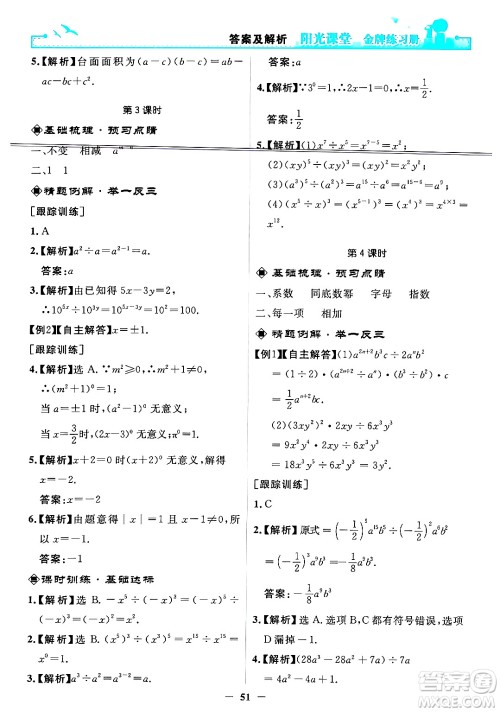 答案及解析 阳光课堂 金牌练习册
5.【解析】台面面积为(a－c)(b－c)＝ab－
ac－bc＋c².
第3课时
基础梳理·预习点睛
一、不变 相减 aᵐ⁻ⁿ
二、1 1
精题例解·举一反三
[跟踪训练]
1. A
2.【解析】a²÷a＝a²⁻¹＝a.
答案:a
3.【解析】由已知得 5x－3y＝2,
∴10⁵ˣ÷10³ʸ＝10⁵ˣ⁻³ʸ＝10²＝100.
【例2】【自主解答】x＝±1.
[跟踪训练]
4.【解析】选 A. ∵m²≥0,∴(m²＋1)⁰＝1.
当 a＝±1 时,(a²－1)⁰ 无意义;
当 x＝3/2 时,(2x－3)⁰ 无意义;π⁰＝1.
5.【解析】x＋2＝0 时,(x＋2)⁰ 无意义,所以
x＝－2.
答案:－2
6.【解析】由题意得|x|＝1,且 x－1≠0,所
以 x＝－1.
答案:－1
课时训练·基础达标
1.【解析】选 B. －x⁵÷(－x)³＝(－x)⁵÷
(－x)³＝(－x)²＝x².
2.【解析】选 B. (x⁵)³÷(x³)⁵＝x¹⁵÷x¹⁵
＝x⁰＝1.
3.【解析】a³·a³÷a⁵＝a⁶÷a⁵＝a.
答案:a
4.【解析】∵3⁰＝1,∴2x－1＝0,∴x＝1/2.
答案:1/2
5.【解析】(1)x⁷÷x⁵＝x⁷⁻⁵＝x².
(2)(xy)⁵÷(xy)³＝(xy)²＝x²y².
(3)(a³)⁵÷(a²)³＝a¹⁵÷a⁶＝a⁹.
(4)x²⁰÷x⁵÷x³＝x²⁰⁻⁵⁻³＝
x¹².
第4课时
基础梳理·预习点睛
一、系数 同底数幂 字母 指数
二、每一项 相加
精题例解·举一反三
【例1】【自主解答】(1)a²ⁿ⁺²b³c÷2aⁿb²
＝(1÷2)·(a²ⁿ⁺²÷aⁿ)·(b³÷b²)·c
＝1/2aⁿ⁺²bc.
(2)(3xy²)²·(2xy)÷6x³y³
＝9x²y⁴·2xy÷6x³y³
＝18x³y⁵÷6x³y³＝3y².
[跟踪训练]
1. C
2.【解析】原式＝(－1/2)⁵a¹⁵÷(－1/2)²a⁶
＝(－1/2)³a⁹＝－1/8a⁹.
答案:－1/8a⁹
3.【解析】选 A. 选项 B,C 都有符号错误,选项
D 漏掉－1.
4.【解析】(28a³－14a²＋7a)÷(7a)
＝28a³÷7a－14a²÷7a＋7a÷7a
51